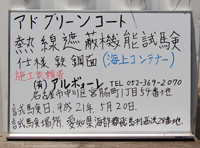 アドグリーンコート
熱線遮蔽機能試験
仕様 鉄鋼面(海上コンテナー)
施工依頼者
(有)アルボォーレ TEL 052-369-2090
名古屋市中川区富船町1丁目54番地
試験日、平成21年5月20日.
試験場所、愛知県海部郡飛島村